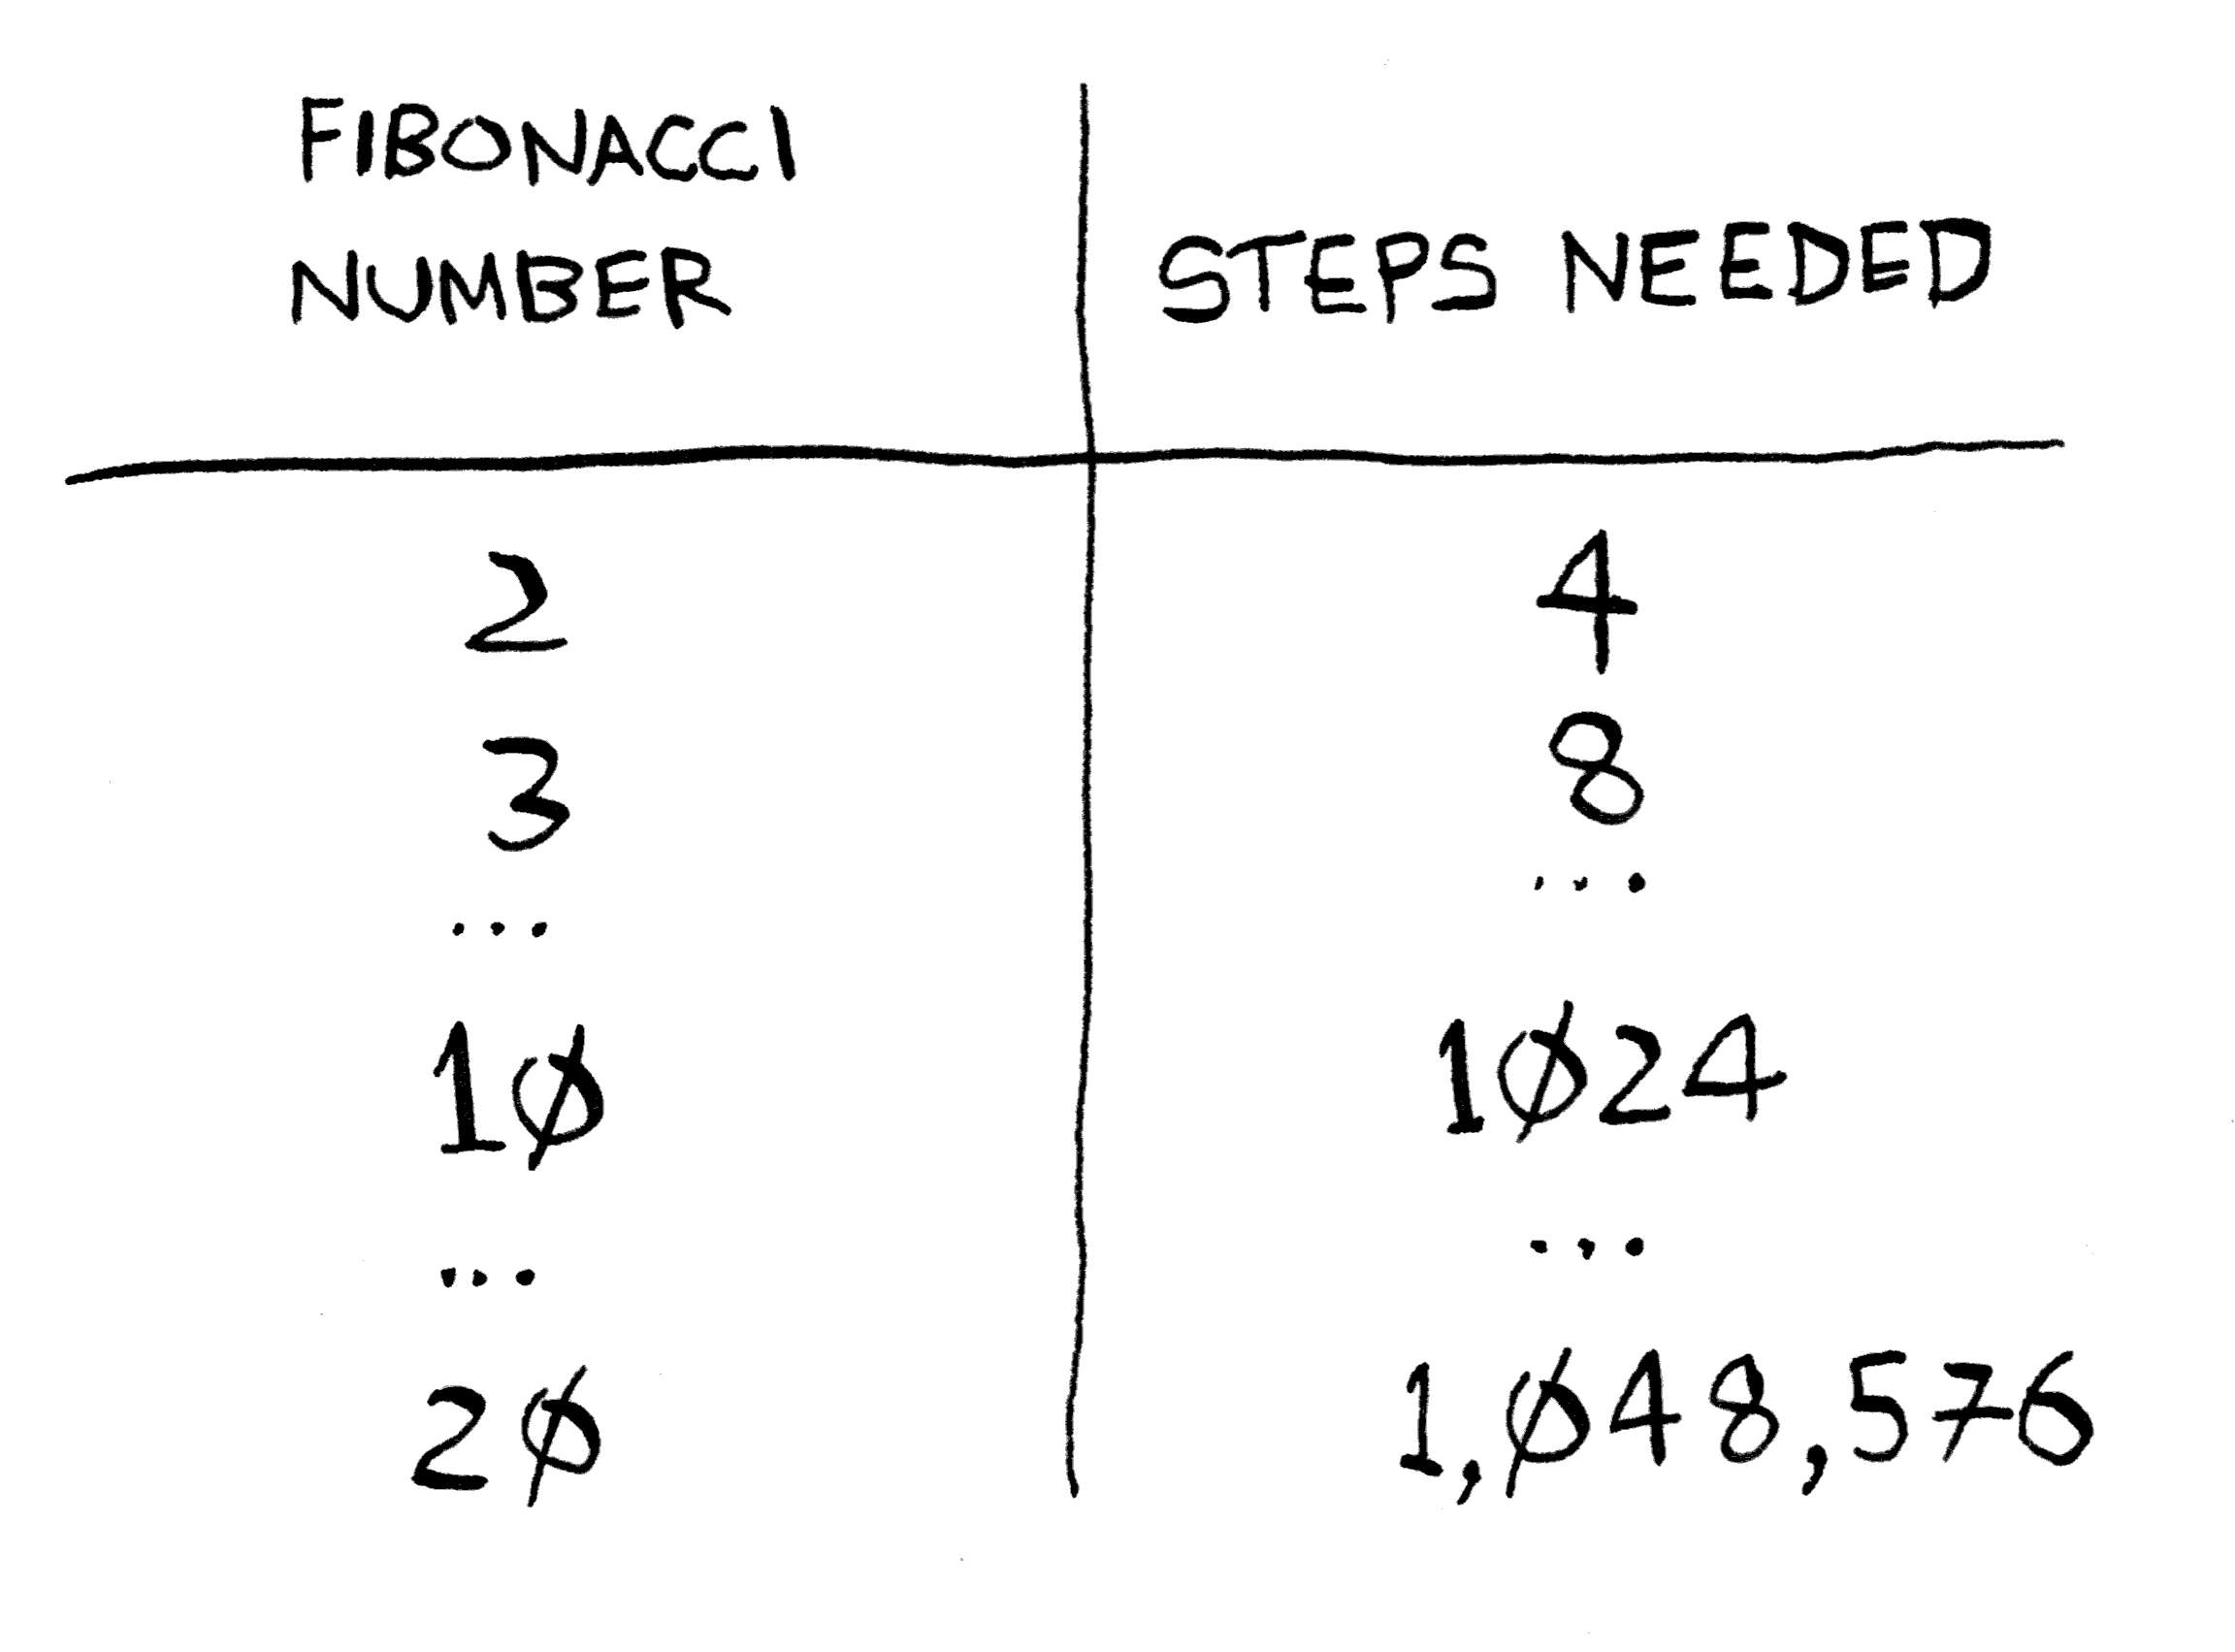 FIBONACCI
NUMBER
STEPS NEEDED
2 4
3 8
... ...
10 1024
... ...
20 1,048,576